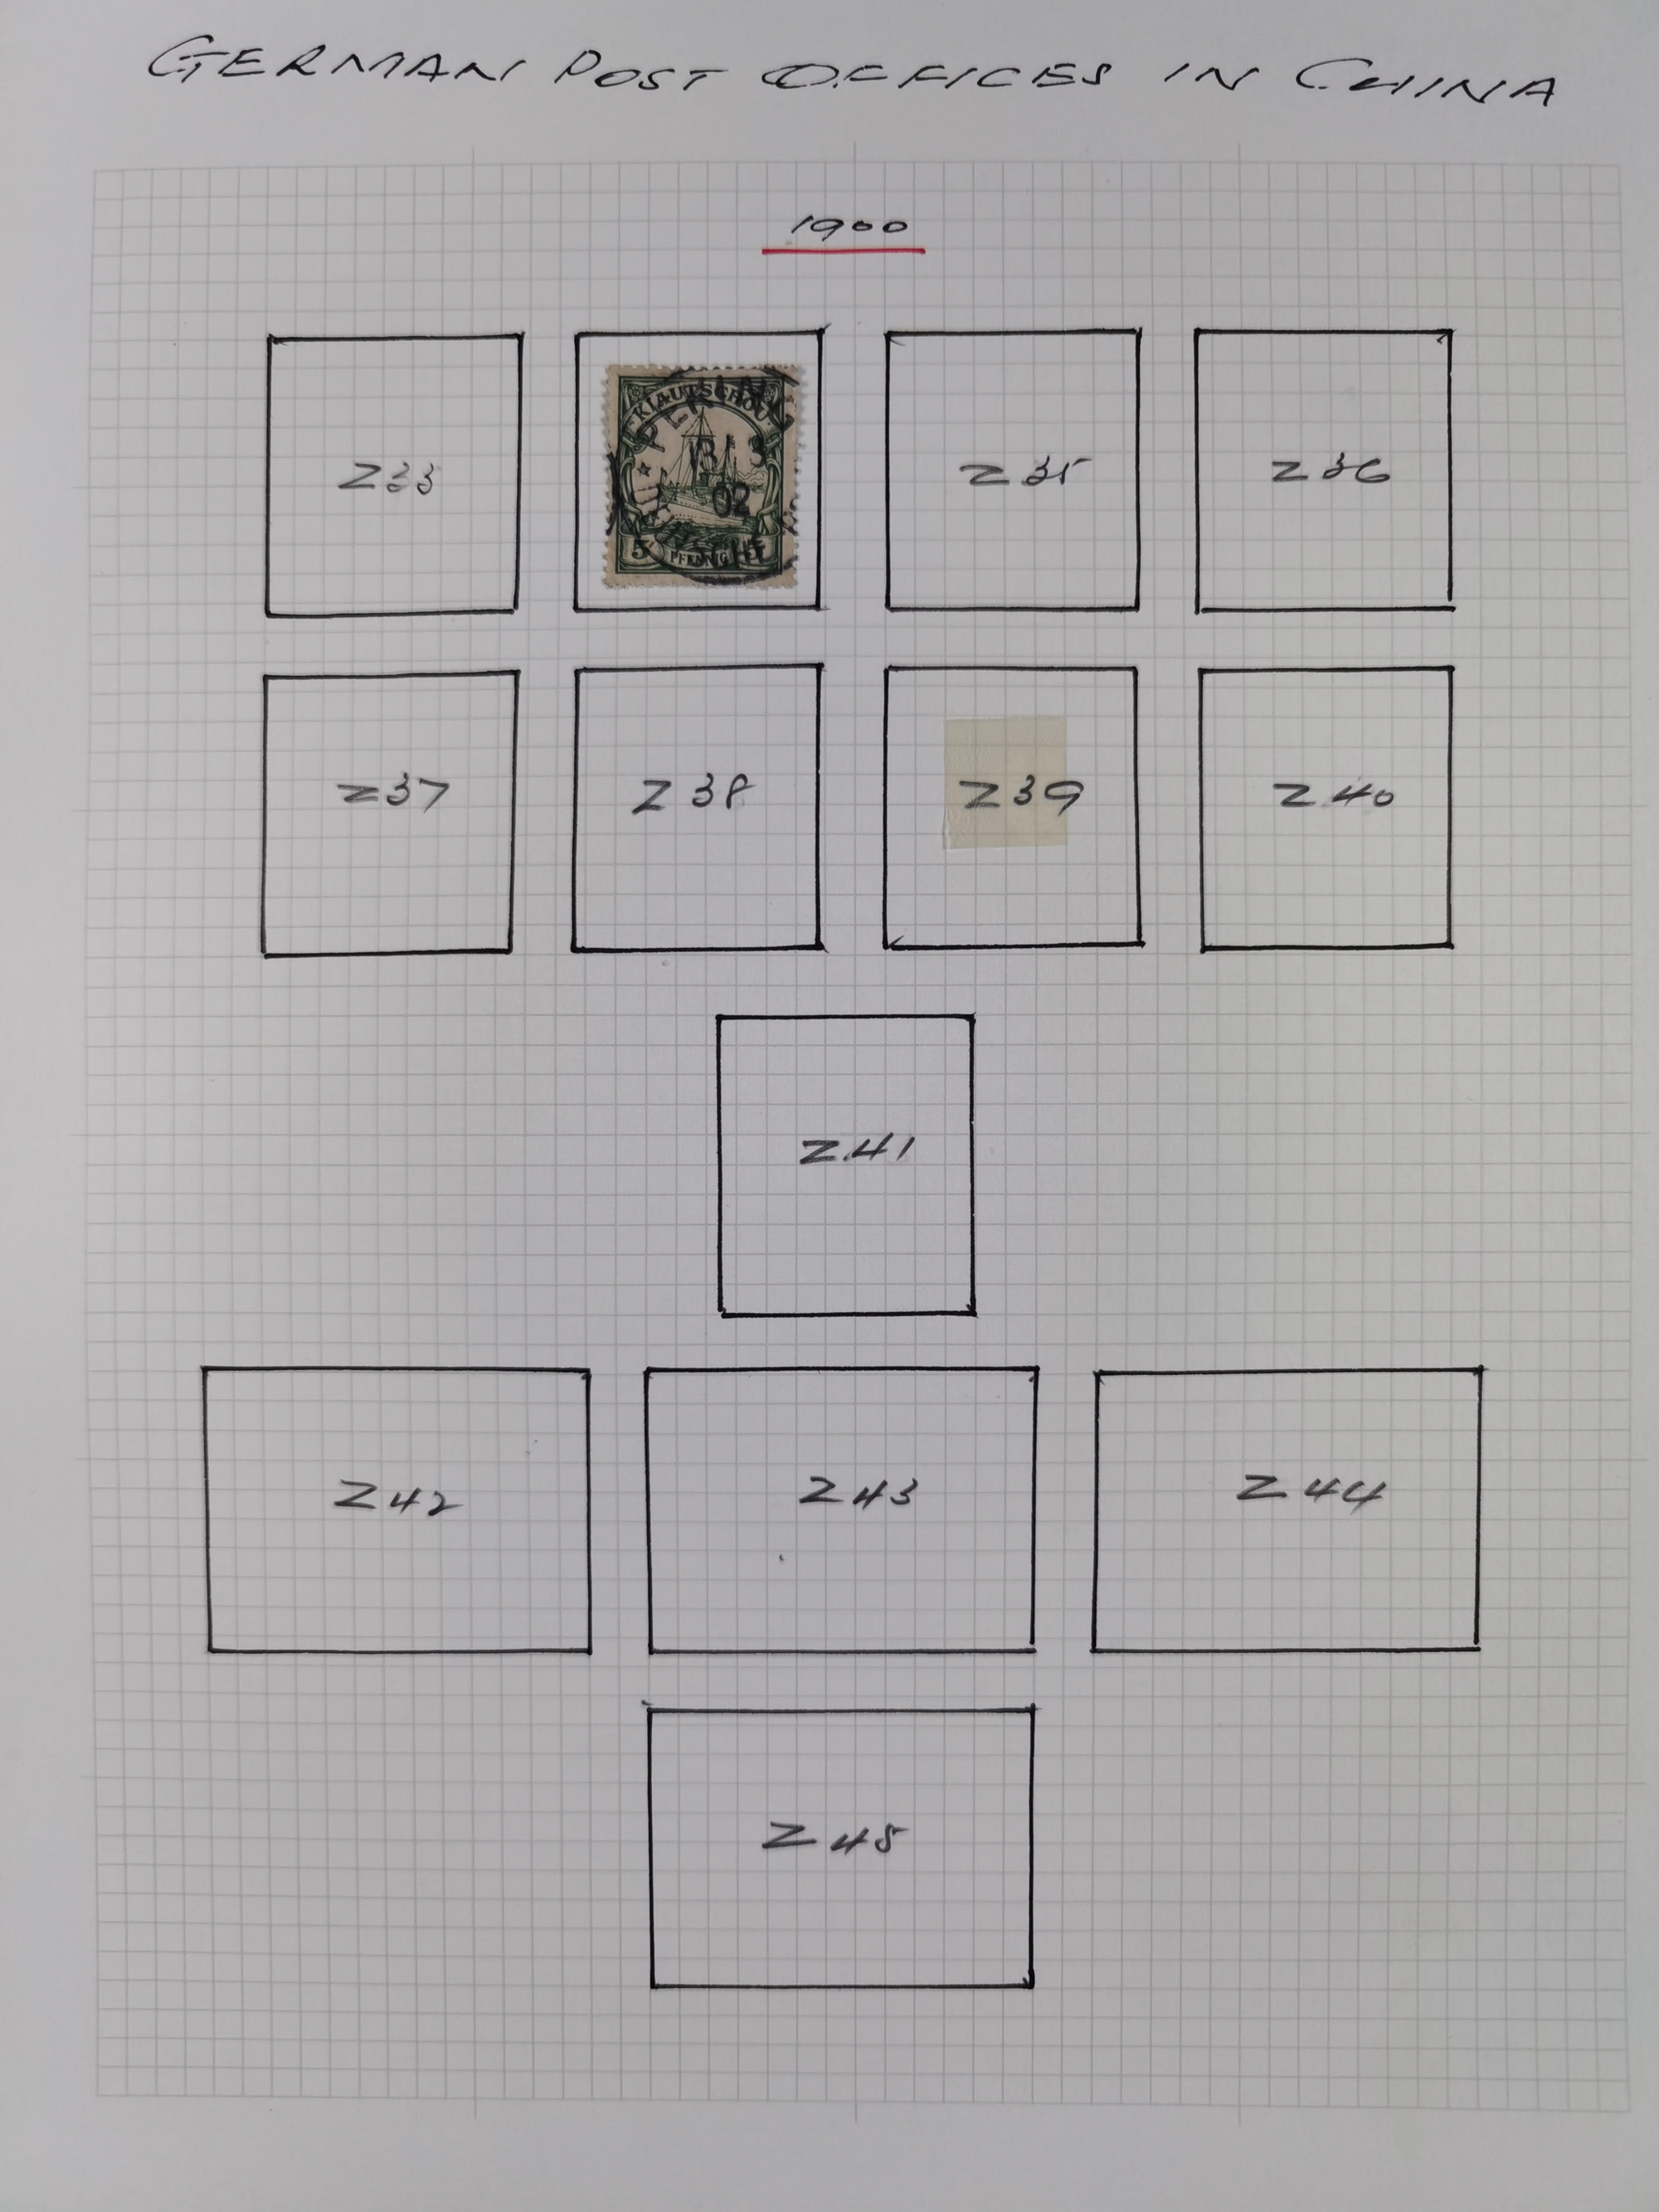 GERMAN POST OFFICES IN CHINA
1900
Z33
KIAUTSCHOU
PEKING
13/3
02
5 PFENNIG 5
Z35
Z36
Z37
Z38
Z39
Z40
Z41
Z42
Z43
Z44
Z45